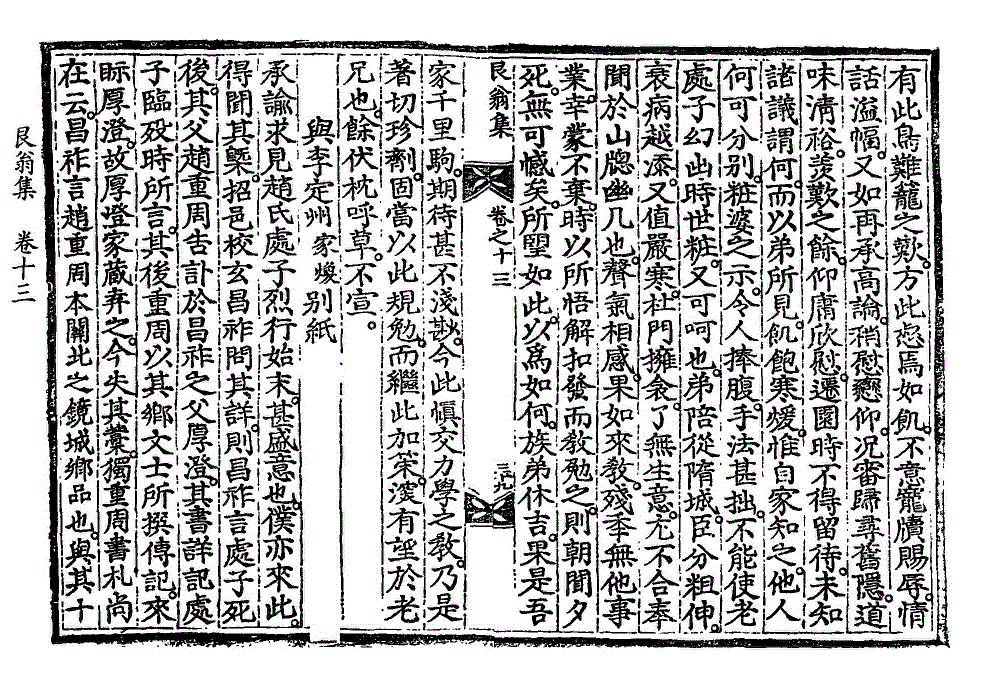 有此鳥難籠之歎方此悲焉如飢不意寵牘賜辱情
話溢幅又如再承高論稍慰戀仰況審歸尋舊隱道
味淸裕羨歎之餘仰庸欣慰遷園時不得留待未知
諸議謂何而以弟所見飢飽寒煖惟自家知之他人
何可分别粧婆之示令人捧腹手法甚拙不能使老
處子幻出時世粧又可呵也弟陪從隋城臣分粗伸
衰病越添又値嚴寒杜門擁衾了無生意尤不合奉
聞於山牕幽几也聲氣相感果如來敎殘年無他事
業幸蒙不棄時以所悟解扣發而敎勉之則朝聞夕
死無可憾矣所望如此以爲如何族弟休吉果是吾
艮翁集 卷之十三 三九
家千里駒期待甚不淺尠今此愼交力學之敎乃是
著切珍劑固當以此規勉而繼此加策深有望於老
兄也餘伏枕呼草不宣
與李定州 家煥 别紙
承諭求見趙氏處子烈行始末甚盛意也僕亦來此
得聞其槩招邑校玄昌祚問其詳則昌祚言處子死
後其父趙重周告訃於昌祚之父厚澄其書詳記處
子臨歿時所言其後重周以其鄕文士所撰傳記來
眎厚澄故厚澄家藏弆之今失其藁獨重周書札尚
在云昌祚言趙重周本關北之鏡城鄕品也與其十
艮翁集 卷十三